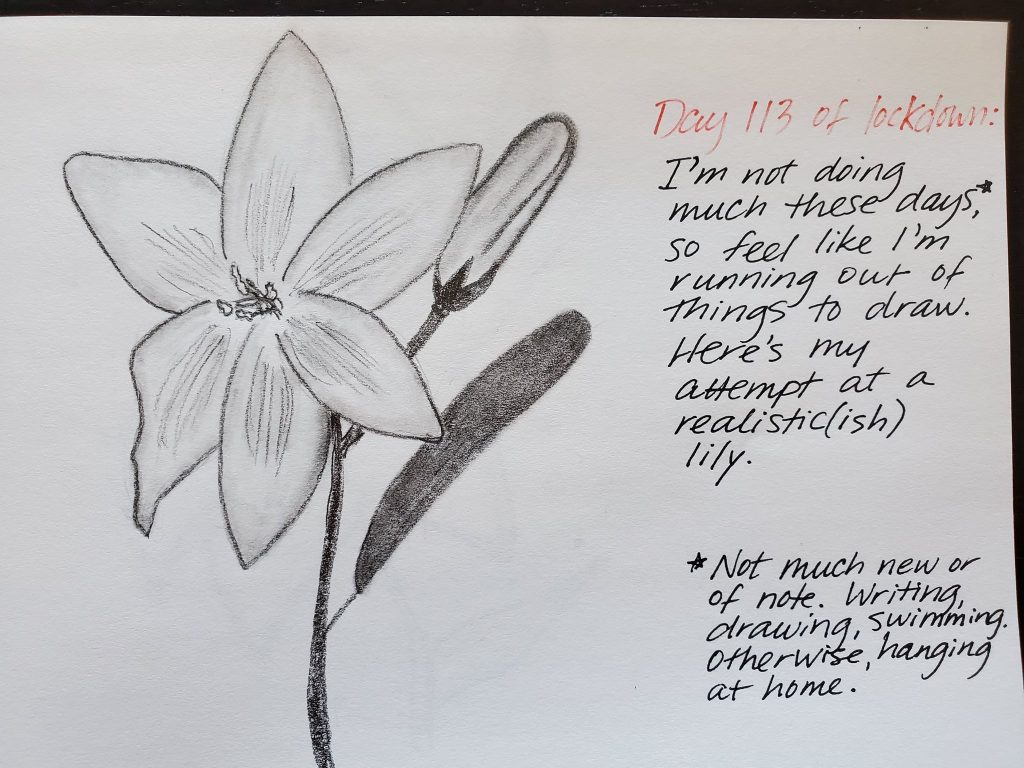 Day 113 of lockdown:
I'm not doing
much these days,*
so feel like I'm
running out of
things to draw.
Here's my
attempt at a
realistic(ish)
lily.
*Not much new or
of note. Writing,
drawing, swimming.
Otherwise, hanging
at home.